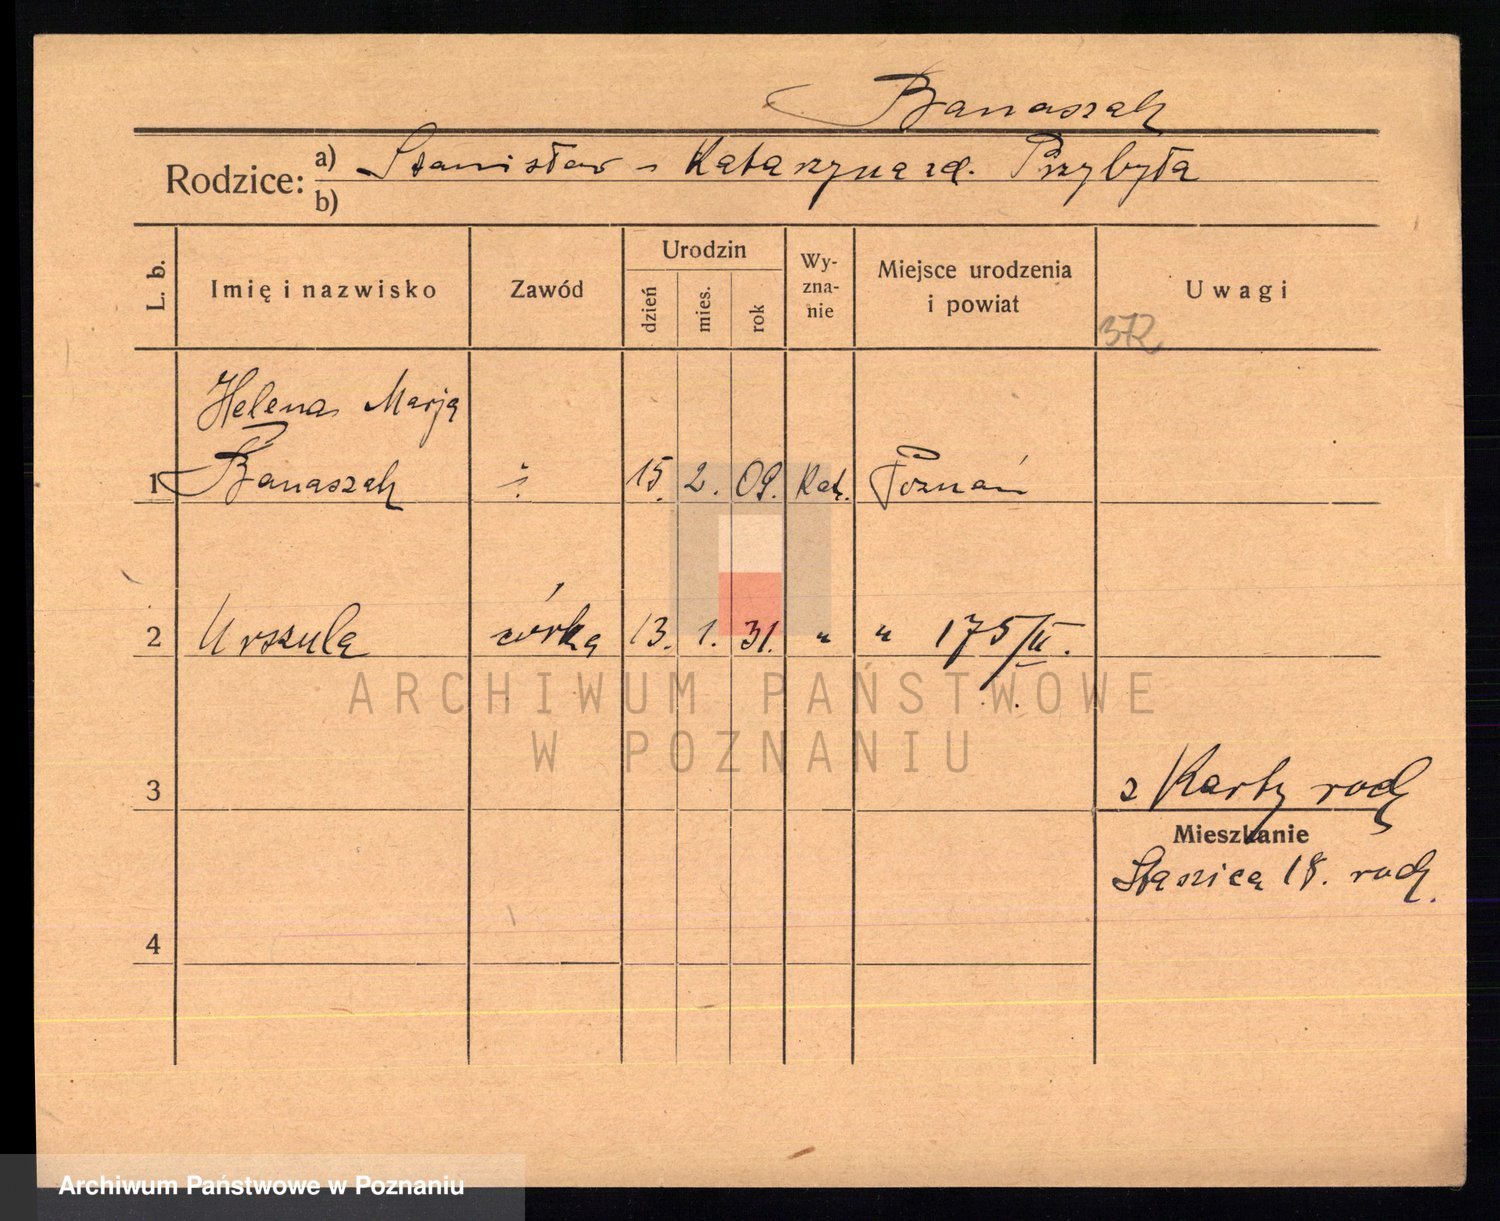 Banaszak
Rodzice: a) Stanisław - Katarzyna zd. Przybyła
b)
L. b. Imię i nazwisko Zawód Urodzin dzień mies. rok Wy-zna-nie Miejsce urodzenia i powiat Uwagi
372
Helena Marja
1 Banaszak 15. 2. 09. Kat. Poznań
2 Urszula córka 13. 1. 31. " " 175/II.
ARCHIWUM PAŃSTWOWE
W POZNANIU
3 z Karty rodz
Mieszkanie
Staszica 18. rodz.
4
Archiwum Państwowe w Poznaniu